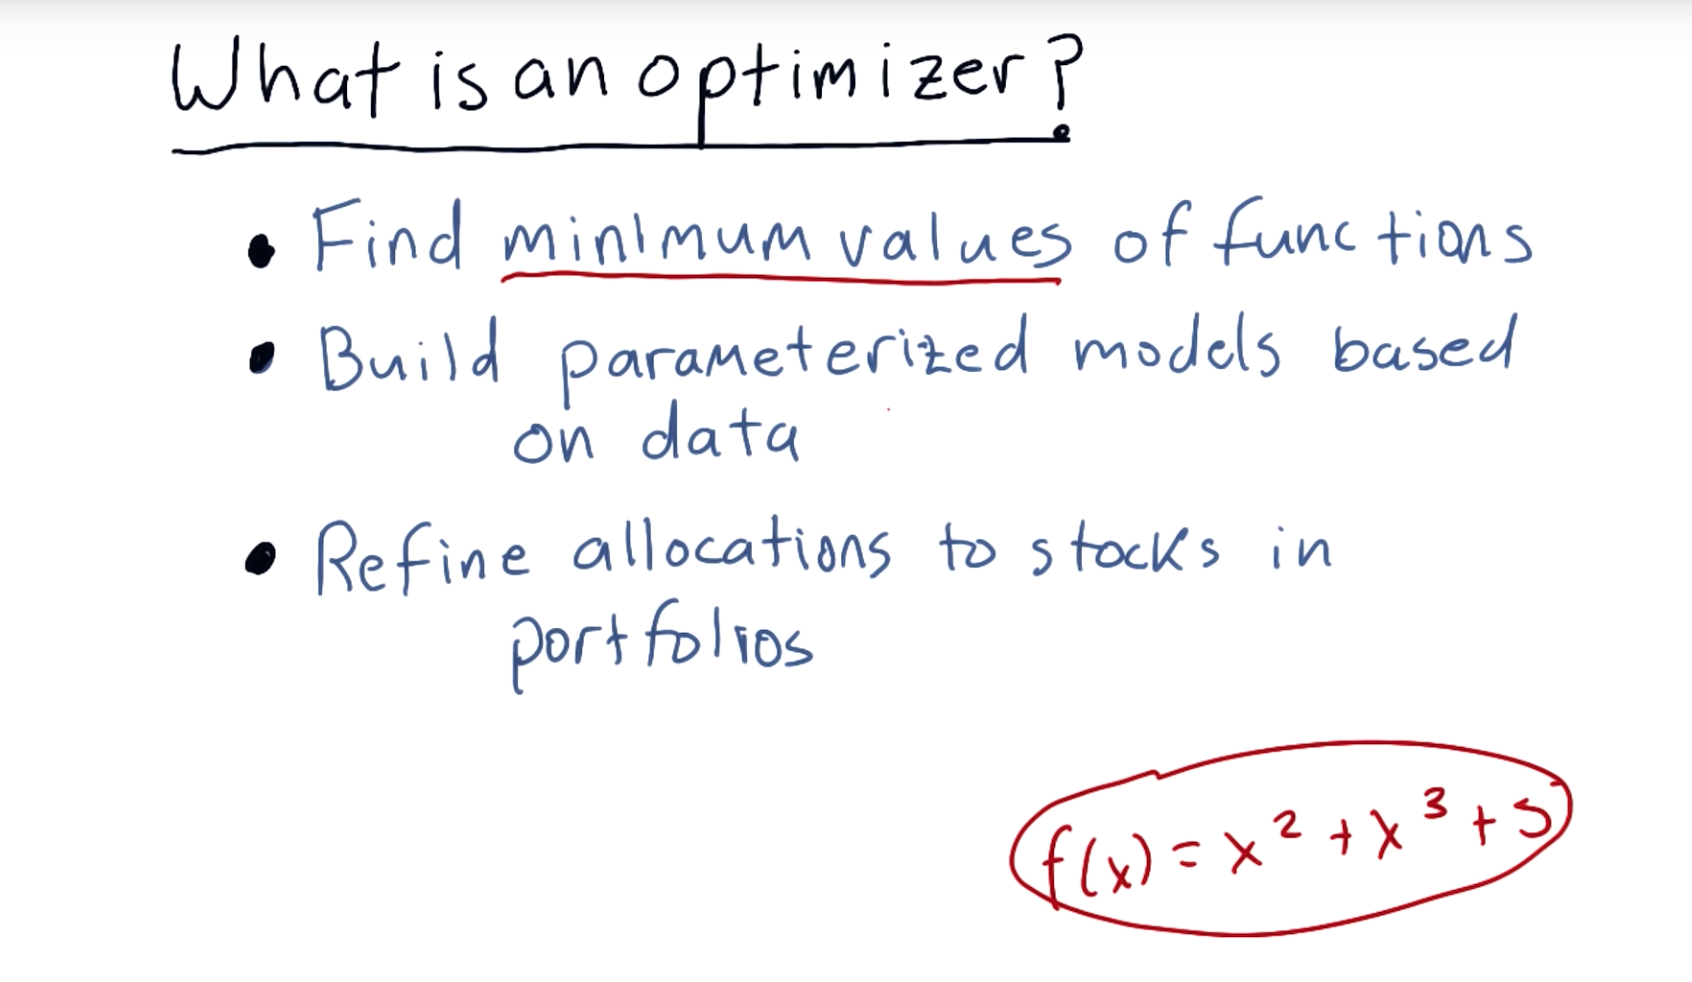 What is an optimizer?
• Find minimum values of functions
• Build parameterized models based
on data
• Refine allocations to stocks in
portfolios
f(x) = x² + x³ + 5